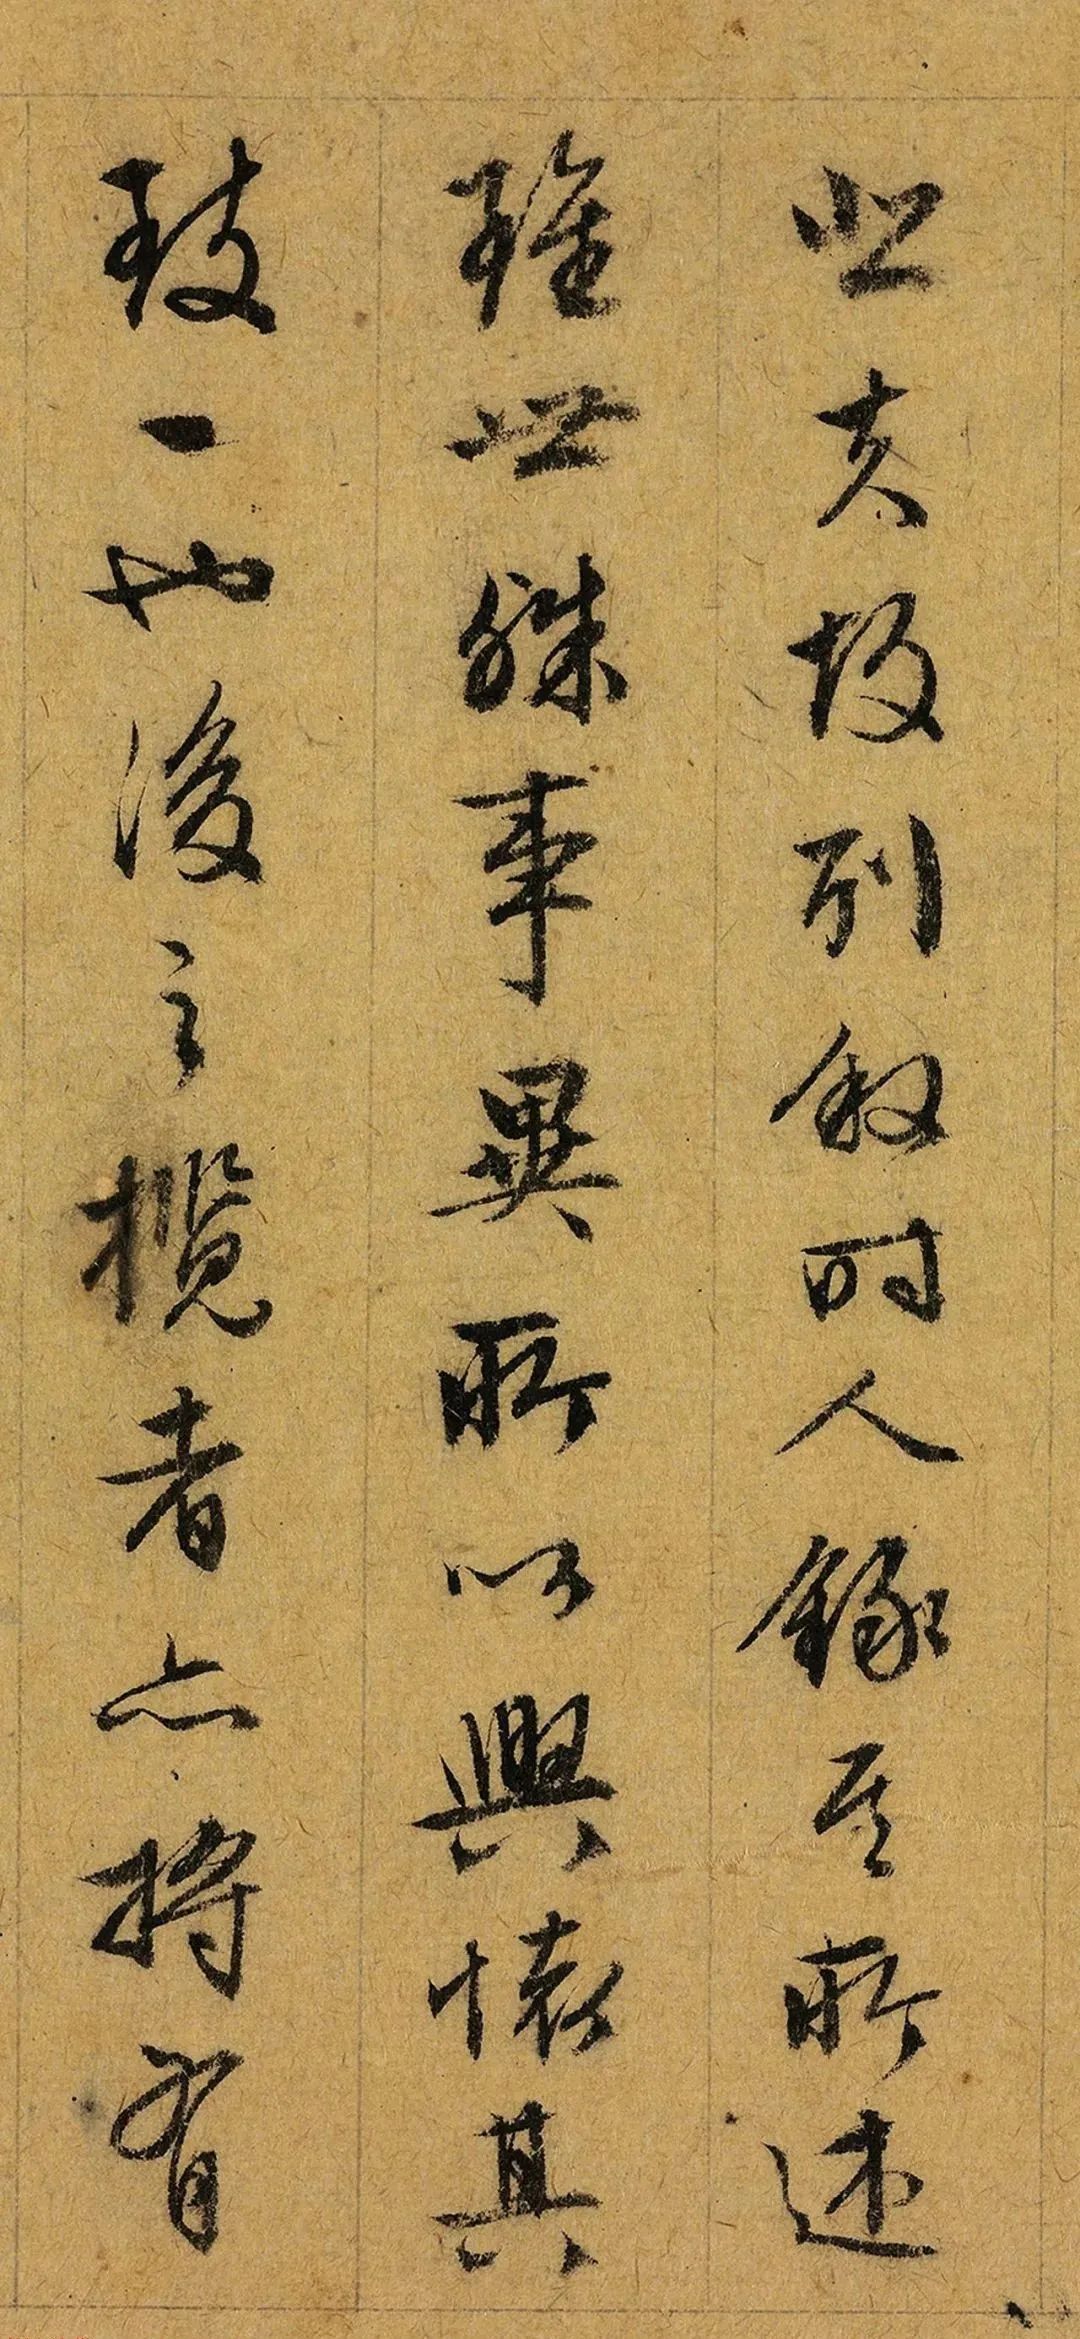 悲夫故列叙時人録其所述
雖世殊事異所以興懷其
致一也後之攬者亦將有